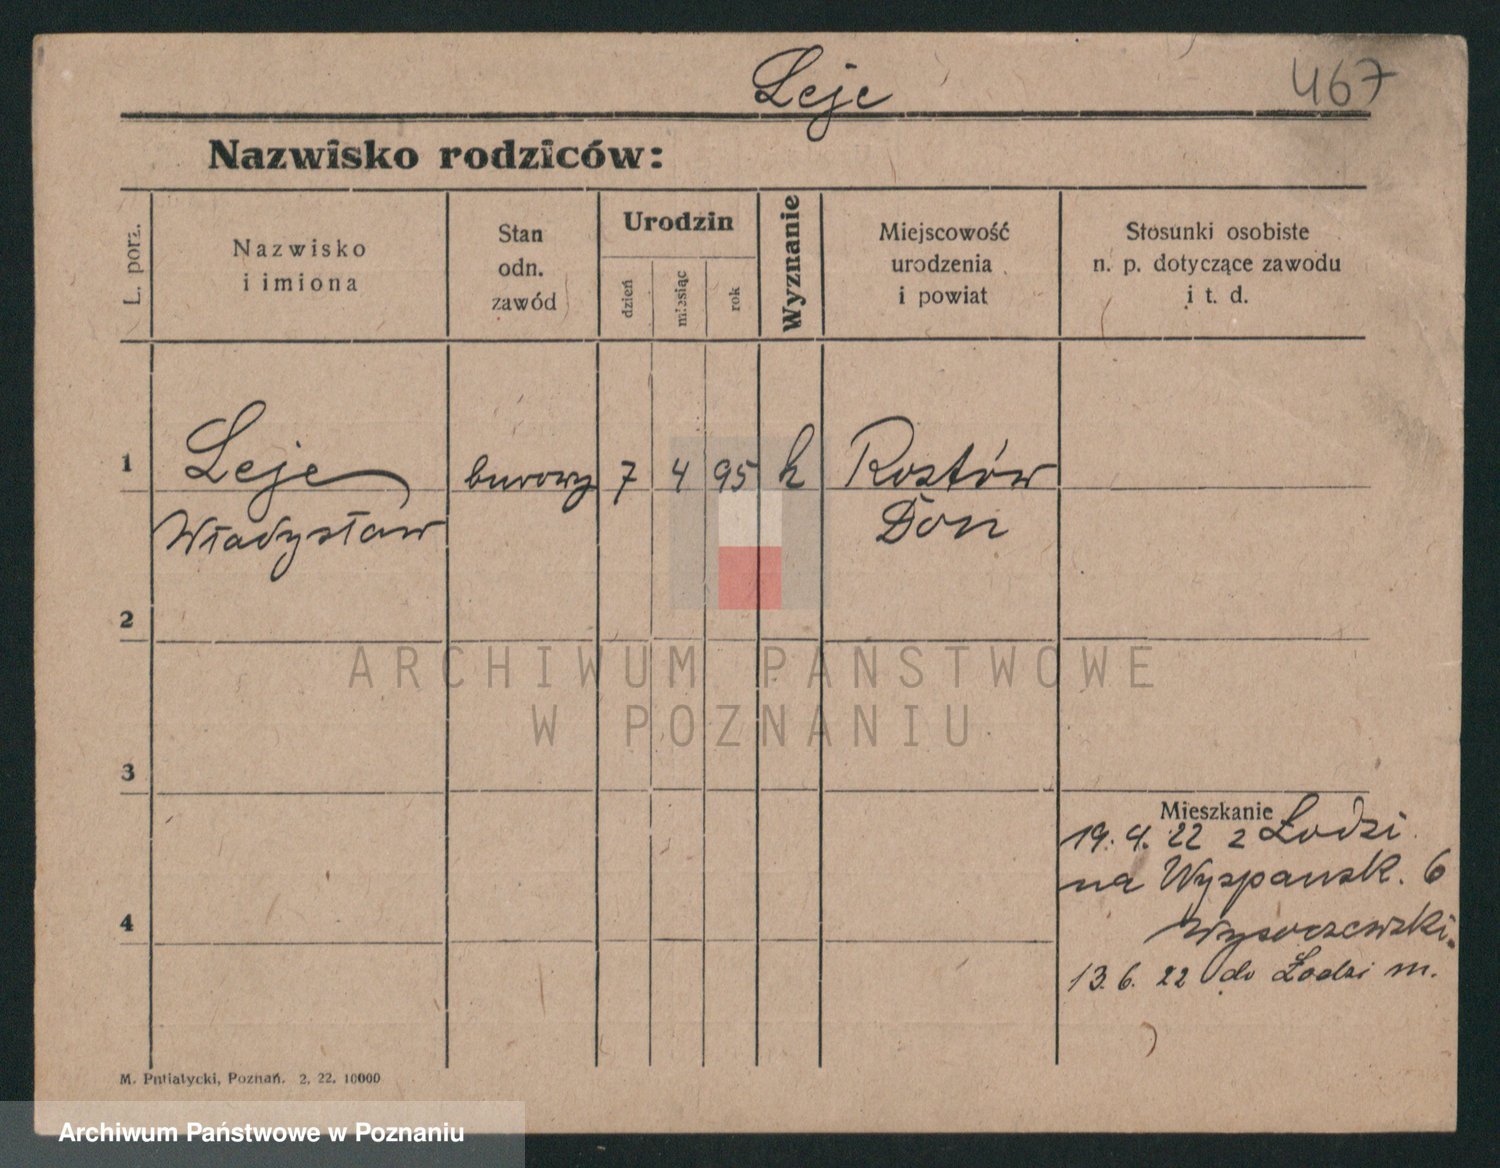 Leje
467
Nazwisko rodziców:
L. porz.
Nazwisko
i imiona
Stan
odn.
zawód
Urodzin
dzień
miesiąc
rok
Wyznanie
Miejscowość
urodzenia
i powiat
Stosunki osobiste
n. p. dotyczące zawodu
i t. d.
1
Leje
Władysław
biurowy
7
4
95
k
Rostów
Don
2
3
4
Mieszkanie
19. 4. 22 z Łodzi
na Wyspańsk. 6
Wysoczewski
13. 6. 22 do Łodzi m.
M. Putiatycki, Poznań. 2. 22. 10000
ARCHIWUM PAŃSTWOWE
W POZNANIU
Archiwum Państwowe w Poznaniu